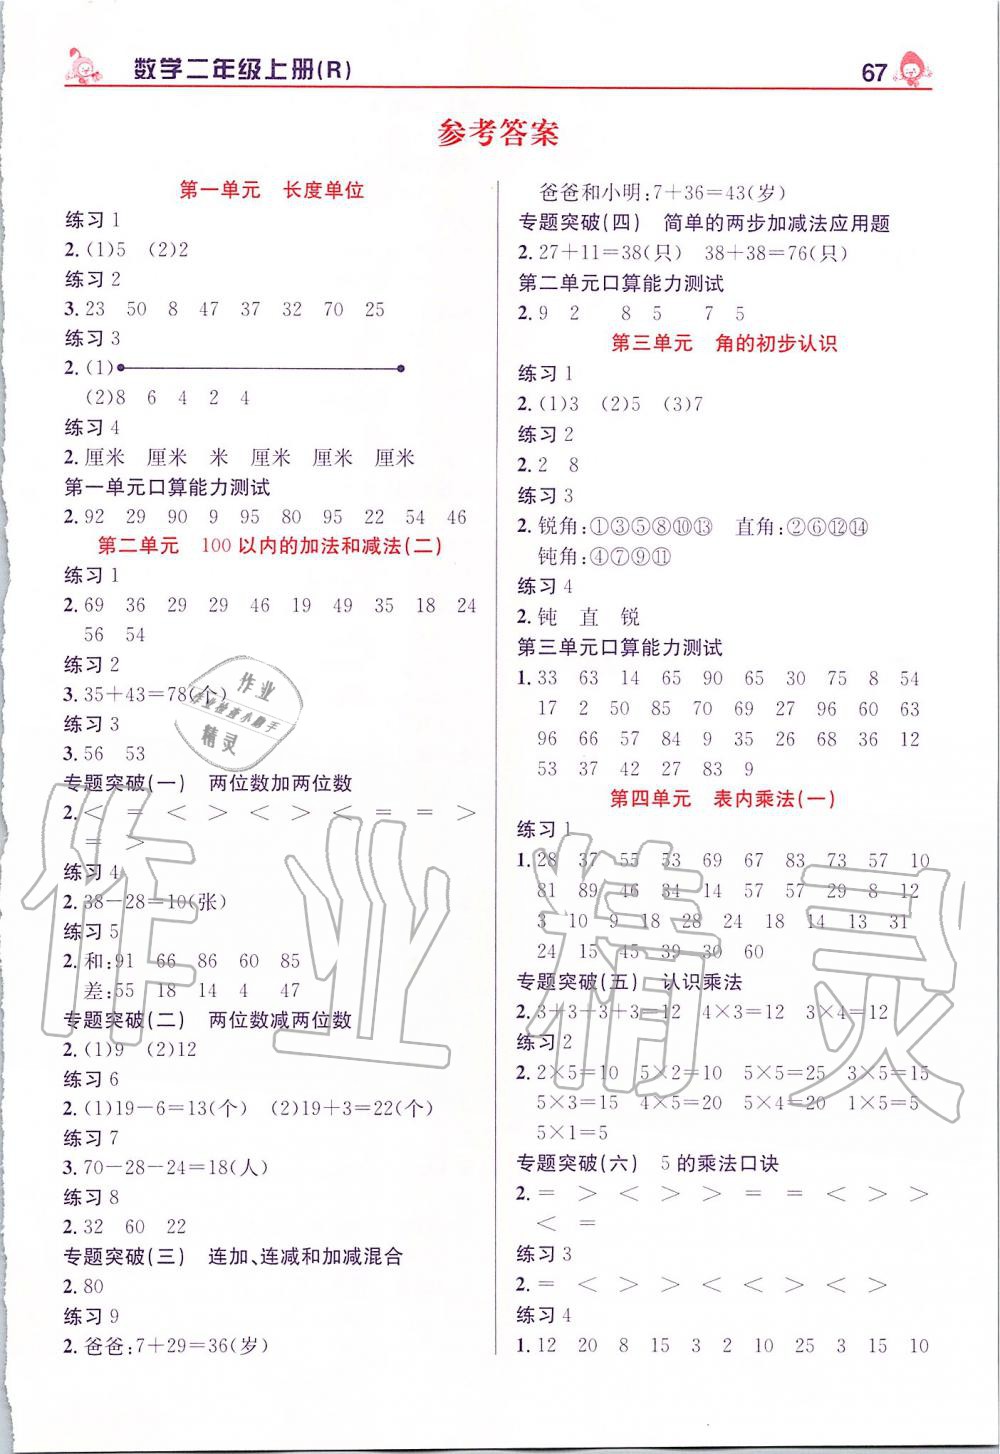 数学二年级上册(R)
67
参考答案
第一单元 长度单位
练习1
2.(1)5 (2)2
练习2
3.23 50 8 47 37 32 70 25
练习3
2.(1)
(2)8 6 4 2 4
练习4
2.厘米 厘米 米 厘米 厘米 厘米
第一单元口算能力测试
2.92 29 90 9 95 80 95 22 54 46
第二单元 100以内的加法和减法(二)
练习1
2.69 36 29 29 46 19 49 35 18 24
56 54
练习2
3.35+43=78(个)
练习3
3.56 53
专题突破(一) 两位数加两位数
2.< = < > < > < = = >
= >
练习4
2.38-28=10(张)
练习5
2.和:91 66 86 60 85
差:55 18 14 4 47
专题突破(二) 两位数减两位数
2.(1)9 (2)12
练习6
2.(1)19-6=13(个) (2)19+3=22(个)
练习7
3.70-28-24=18(人)
练习8
2.32 60 22
专题突破(三) 连加、连减和加减混合
2.80
练习9
2.爸爸:7+29=36(岁)
爸爸和小明:7+36=43(岁)
专题突破(四) 简单的两步加减法应用题
2.27+11=38(只) 38+38=76(只)
第二单元口算能力测试
2.9 2 8 5 7 5
第三单元 角的初步认识
练习1
2.(1)3 (2)5 (3)7
练习2
2.2 8
练习3
2.锐角:①③⑤⑧⑩⑬ 直角:②⑥⑫⑭
钝角:④⑦⑨⑪
练习4
2.钝 直 锐
第三单元口算能力测试
1.33 63 14 65 90 65 30 75 8 54
17 2 50 85 70 21 27 96 60 63
96 66 57 54 94 35 26 68 36 12
53 37 42 27 83 9
第四单元 表内乘法(一)
练习1
1.28 37 55 53 69 67 83 73 57 10
81 89 46 34 14 57 57 29 8 12
3 10 9 18 28 24 18 14 13 31
24 15 45 39 30 60
专题突破(五) 认识乘法
2.3+3+3+3=12 4×3=12 3×4=12
练习2
2.2×5=10 5×2=10 5×5=25 3×5=15
5×3=15 4×5=20 5×4=20 1×5=5
5×1=5
专题突破(六) 5的乘法口诀
2.= > < > > = = < > >
< =
练习3
2.= < > > < < < > >
练习4
1.12 20 8 15 3 2 10 25 3 15 10
作业
作业检查小助手
精灵
作业精灵